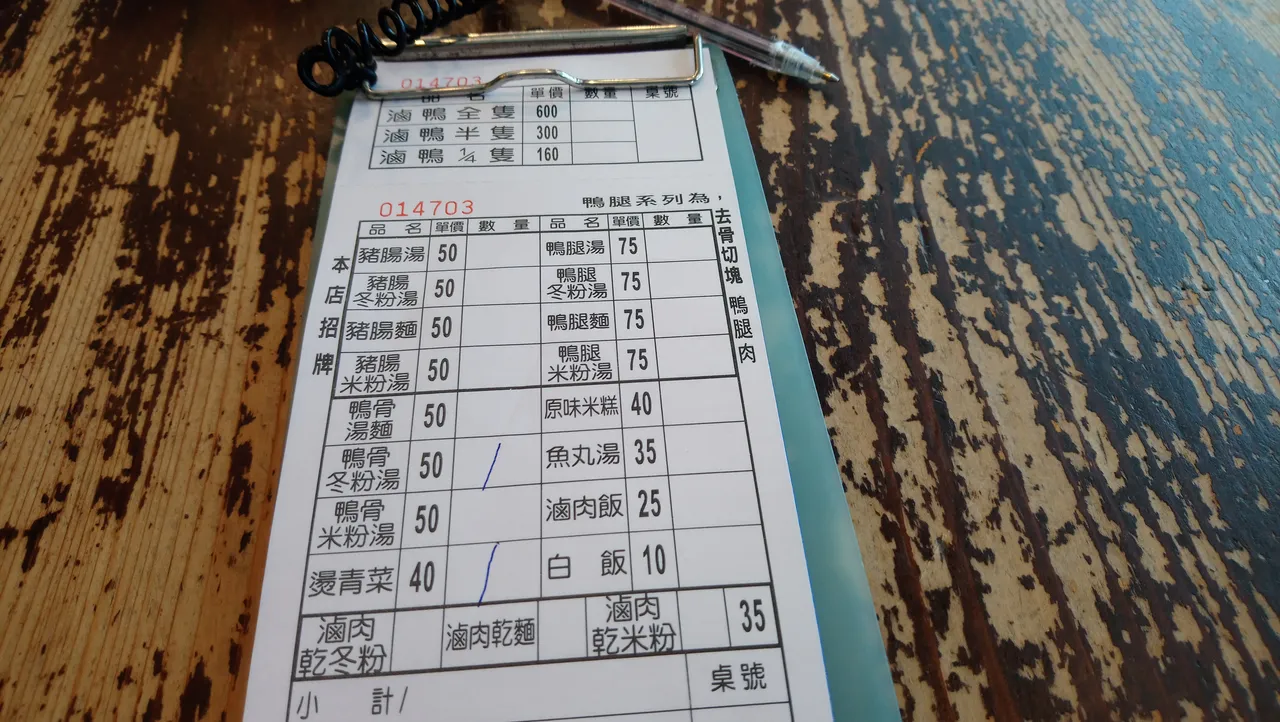 014703
品 名 單價 數量 桌號
滷鴨全隻 600
滷鴨半隻 300
滷鴨¼隻 160
鴨腿系列為,
去骨切塊 鴨腿肉
014703
本店招牌
品 名 單價 數 量 品 名 單價 數 量
豬腸湯 50 鴨腿湯 75
豬腸冬粉湯 50 鴨腿冬粉湯 75
豬腸麵 50 鴨腿麵 75
豬腸米粉湯 50 鴨腿米粉湯 75
鴨骨湯麵 50 原味米糕 40
鴨骨冬粉湯 50 / 魚丸湯 35
鴨骨米粉湯 50 滷肉飯 25
燙青菜 40 / 白 飯 10
滷肉乾冬粉 滷肉乾麵 滷肉乾米粉 35
小 計/ 桌號